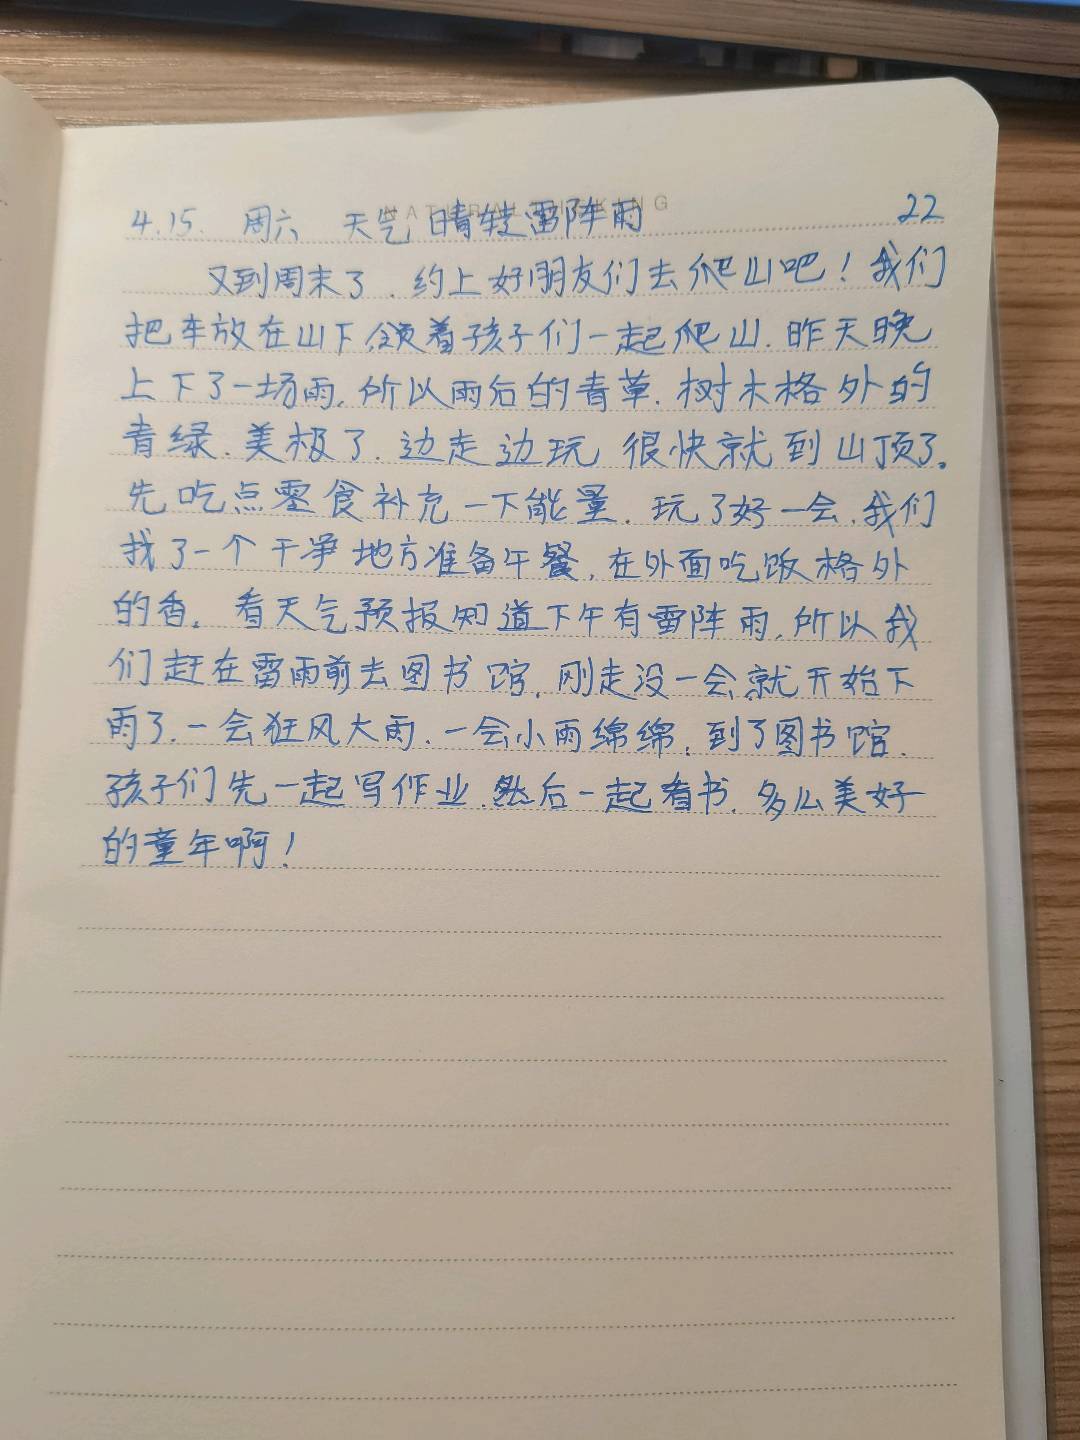 NATURAL THINKING
4.15. 周六 天气晴转雷阵雨 22
又到周末了.约上好朋友们去爬山吧!我们
把车放在山下,领着孩子们一起爬山.昨天晚
上下了一场雨.所以雨后的青草.树木格外的
青绿.美极了.边走边玩 很快就到山顶了。
先吃点零食补充一下能量.玩了好一会.我们
找了一个干净地方准备午餐,在外面吃饭格外
的香。看天气预报知道下午有雷阵雨,所以我
们赶在雷雨前去图书馆,刚走没一会就开始下
雨了.一会狂风大雨.一会小雨绵绵.到了图书馆.
孩子们先一起写作业.然后一起看书.多么美好
的童年啊!